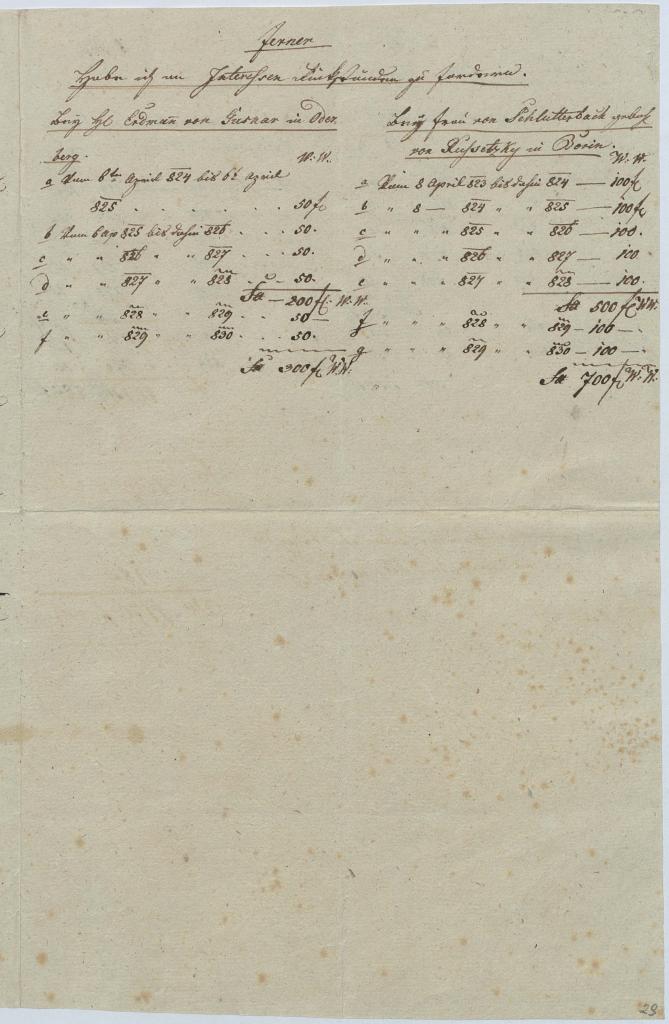 ferner
Habe ich an Interessen Rückständen zu fordern.
Bey H. Erdmañ von Gusnar in Oder
berg. W. W.
a Vom 6ten April 824 bis 6t April
825 . . . . . 50 f
b Vom 6 Ap 825 bis dahin 826 . . . 50.
c " " 826 " " 827 . . 50.
d " " 827 " " 828 . . 50.
Sa — 200 f. W. W.
e " " 828 " " 829 . . 50
f " " 829 " " 830 . . 50.
Sa 300 f W. W.
Bey Frau von Schlutterbach gebohr
von Russetzky in Dorin.
W. W.
a Vom 8 April 823 bis dahin 824 — 100 f
b " " 8 — 824 " " 825 — 100 f
c " " " 825 " " 826 — 100.
d " " " 826 " " 827 — 100
e " " " 827 " " 828 — 100.
Sa 500 f W W.
f " " " 828 " " 829 — 100 —.
g " " " 829 " " 830 — 100 —.
Sa 700 f W. W.
29